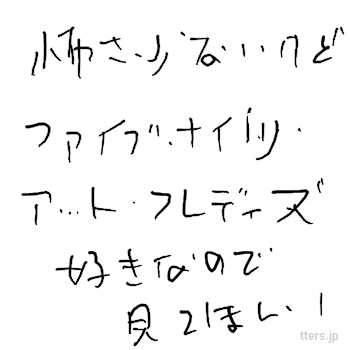 怖さ少ないけど
ファイブ・ナイツ・
アット・フレディーズ
好きなので
見てほしい！
tters.jp